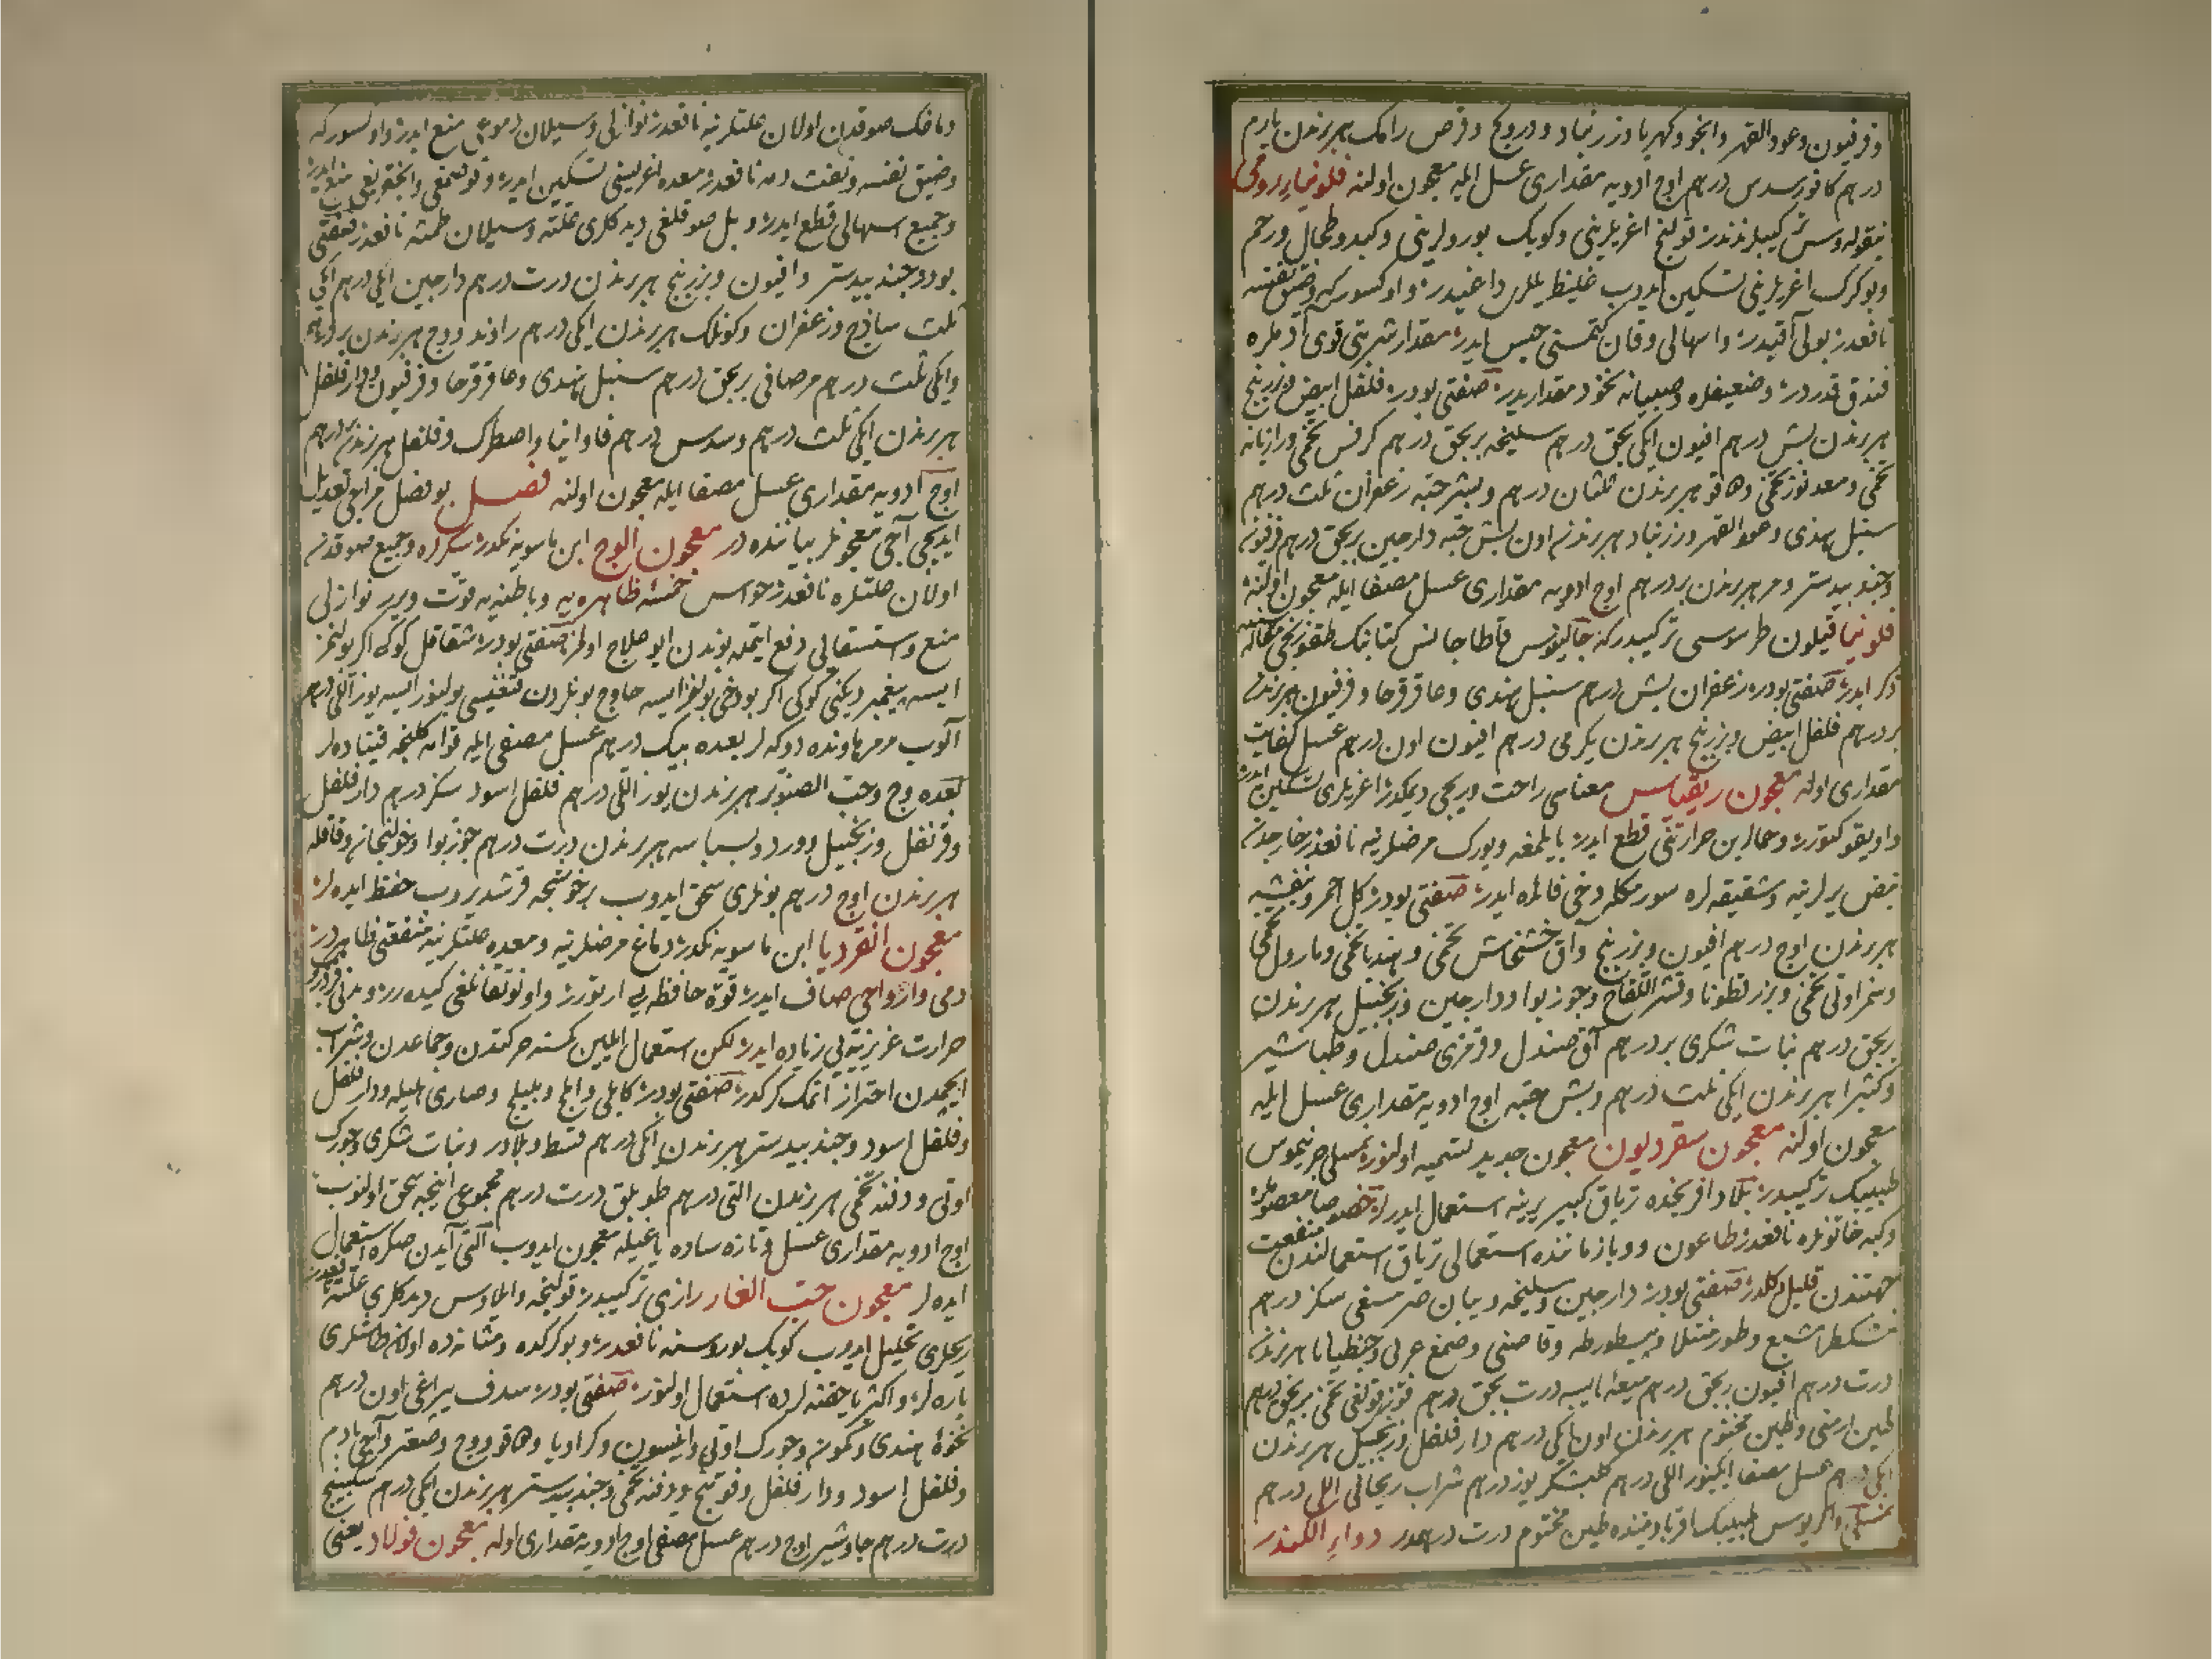 و فرفيون وعود القهر وانجو وكهربا وزرنباد ودرونج وقرص رامك هر برندن يارم
درهم كافور سدس درهم اوج ادويه مقداری عسل ايله معجون اولنه فلونياء رومی
قولنج اغريلرينی وكوبك بورولرينی وكبد وطحال ورحم
وبوكرك اغريلرينی تسكين ايدوب غليظ يللری داغيدر واوكسوركه وضيق نفسه
نافعدر بولی آقيدر واسهالی وقان كتمسنی حبس ايدر مقدار شربتی قوی آدملره
فندق قدردر وضعيفلره وصبيانه نخود مقداريدر صفتی بودر فلفل ابيض وبزرنج
هر برندن بش درهم افيون ايكی بچق درهم سليخه بر بچق درهم كرفس تخمی ورازيانه
تخمی ومعدنوز تخمی ودوقو هر برندن ثلثان درهم وبشر حبه زعفران ثلث درهم
سنبل هندی وعود القهر وزرنباد هر برندن اون بش حبه دارچين بر بچق درهم فرفيون
وجند بيدستر ومر هر برندن بر درهم اوج ادويه مقداری عسل مصفا ايله معجون اولنه
فلونيا فيلون طرسوسی تركيبدر كه جالينوس قاطاجانس كتابنك طقوزنجی مقاله سنده
ذكر ايدر صفتی بودر زعفران بش درهم سنبل هندی وعاقرقرحا وفرفيون هر برندن
بر درهم فلفل ابيض وبزرنج هر برندن يكرمی درهم افيون اون درهم عسل كفايت
مقداری اوله معجون معناسی راحت ويريجی ديمكدر اغريلری تسكين ايدر
واويقو كتورر وحمالرين حرارتنی قطع ايدر بايلمغه ويورك مرضلرينه نافعدر خارجدن
نبض يرلرينه وشقيقه لره سورمكله دخی فائده ايدر صفتی بودر كل احمر وبنفشه
هر برندن اوج درهم افيون وبزرنج وآق خشخاش تخمی وهندبا تخمی ومارول تخمی
وسمز اوتی تخمی وبزر قطونا وقشر اللفاح وجوز بوا ودارچين وزنجبيل هر برندن
بر بچق درهم نبات شكری بر درهم آق صندل وقرمزی صندل وطباشير
وكثيرا هر برندن ايكی ثلث درهم وبش حبه اوج ادويه مقداری عسل ايله
معجون اولنه معجون سقرديون معجون جديد تسميه اولنور
طبيبك تركيبدر بلاد افرنجده ترياق كبير يرينه استعمال ايدرلر خصوصا معصوملره
وكبه خاتونلره نافعدر طاعون ووبا زماننده استعمالی ترياق استعمالندن منفعت
جهتندن قليل دكلدر صفتی بودر دارچين وسليخه سكز درهم
وصمغ عربی وجنطيانا هر برندن
درت درهم افيون بر بچق درهم ميعه يابسه درت بچق درهم
طين ارمنی وطين مختوم هر برندن اون ايكی درهم دارفلفل وزنجبيل هر برندن
ايكی درهم عسل مصفا ايكيوز اللی درهم كلبشكر يوز درهم شراب ريحانی اللی درهم
طبيبك اقرابادينده طين مختوم درت درهمدر دواء الكندر
دماغك صوقدن اولان علتلرينه نافعدر نوازلی وسيلان دموعی منع ايدر واوكسوركه
وضيق نفسه ونفث دمه نافعدر معده اغريسنی تسكين ايدر وقوصمغی وانجقريغی منع ايدر
وجميع اسهالی قطع ايدر وبل صوقلغی ديدكلری علته وسيلان طمثه نافعدر صفتی
بودر جند بيدستر وافيون وبزرنج هر برندن درت درهم دارچين ايكی درهم ايكی
ثلث ساذج وزعفران وكونلك هر برندن ايكی درهم راوند ووج هر برندن بر درهم
وايكی ثلث درهم مر صافی بر بچق درهم سنبل هندی وعاقرقرحا وفرفيون ودارفلفل
هر برندن ايكی ثلث درهم وسدس درهم فاوانيا واصطرك وفلفل هر برندن بر درهم
اوج ادويه مقداری عسل مصفا ايله معجون اولنه فصل بو فصل مزاجی تعديل
ايديجی آجی معجونلر بياننده در معجون الوج ابن ماسويه نكدر سكرلره وجميع صوقدن
اولان علتلره نافعدر حواس خمسه ظاهره يه وباطنه يه قوت ويرر نوازلی
منع واستسقايی دفع ايتمكه بوندن ايو علاج اولمز صفتی بودر شقاقل كوكی اكر بولنمز
ايسه پيغمبر ديكنی كوكی اكر بو دخی بولنمز ايسه هاوج بونلردن قنغيسی بولنور ايسه يوز اللی درهم
آلوب مرمر هاونده دوكه لر بعده بيك درهم عسل مصفی ايله قوامه كلنجه قينادەلر
بعده وج وحب الصنوبر هر برندن يوز اللی درهم فلفل اسود سكز درهم دارفلفل
وقرنفل وزنجبيل وورد وبسباسه هر برندن درت درهم جوز بوا وخولنجان وقاقله
هر برندن اوج درهم بونلری سحق ايدوب برخوشجه قرشديروب حفظ ايده لر
معجون انقرديا ابن ماسويه نكدر دماغ مرضلرينه ومعده علتلرينه منفعتی ظاهردر
دمی وارواحی صاف ايدر قوة حافظه يی ارتورر واونوتقانلغی كيدرر
حرارت غريزيه يی زياده ايدر لكن استعمال ايلين كمسنه حركتدن وجماعدن وشراب
ايچمدن احتراز اتمك كركدر صفتی بودر كابلی واملج وبليلج وصاری هليله ودارفلفل
وفلفل اسود وجند بيدستر هر برندن ايكی درهم قسط وبلادر ونبات شكری وجورك
اوتی ودفنه تخمی هر برندن التی درهم طوبلق درت درهم مجموعی اينجه سحق اولنوب
اوج ادويه مقداری عسل وتازه ساده ياغيله معجون ايدوب آلتی آيدن صكره استعمال
ايده لر معجون حب الغار رازی تركيبدر قولنجه وايلاوس ديدكلری علته نافعدر
ريحلری تحليل ايدوب كوبك بوروسنه نافعدر وبوكركده ومثانه ده اولان طاشلری
پاره لر واكثريا حقنه لرده استعمال اولنور صفتی بودر سدف يپراغی اون درهم
نخوۀ هندی وكمون وجورك اوتی وانيسون وكراويا ودوقو ووج وصعتر وآجی بادم
وفلفل اسود ودار فلفل وفوتنج ودفنه تخمی وجند بيدستر هر برندن ايكی درهم سكبينج
درت درهم جاوشير اوج درهم عسل مصفی اوج ادويه مقداری اوله معجون فولاد يعنی